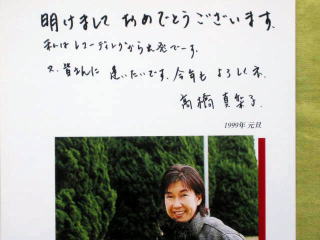 明けまして おめでとうございます.
私はレコーディングから出発でーす。
又、皆さんに 逢いたいです。今年も よろしくネ.
高橋真梨子.
1999年 元旦